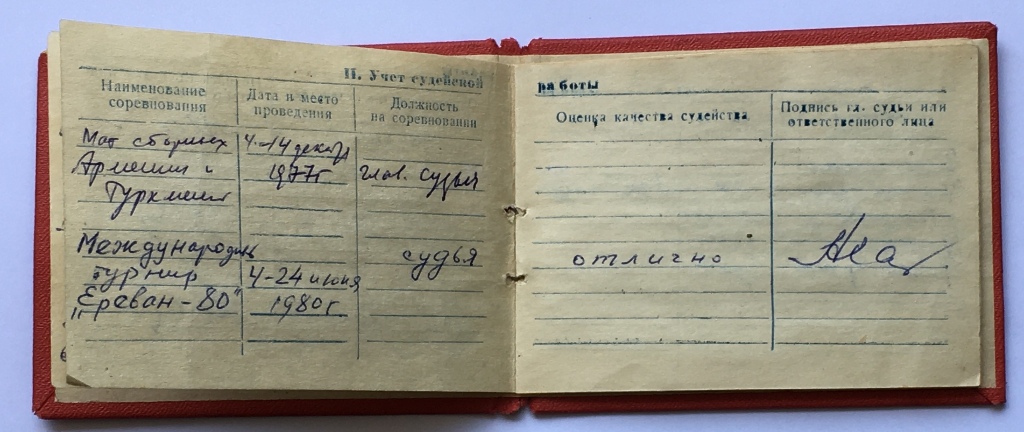 II. Учет судейской работы
Наименование соревнования
Дата и место проведения
Должность на соревновании
Оценка качества судейства
Подпись гл. судьи или ответственного лица
Мат сборных 4-14 декабр
Армении и 1977г глав. судья
Туркмении
Международн судья
турнир 4-24 июня отлично
„Ереван-80" 1980г.